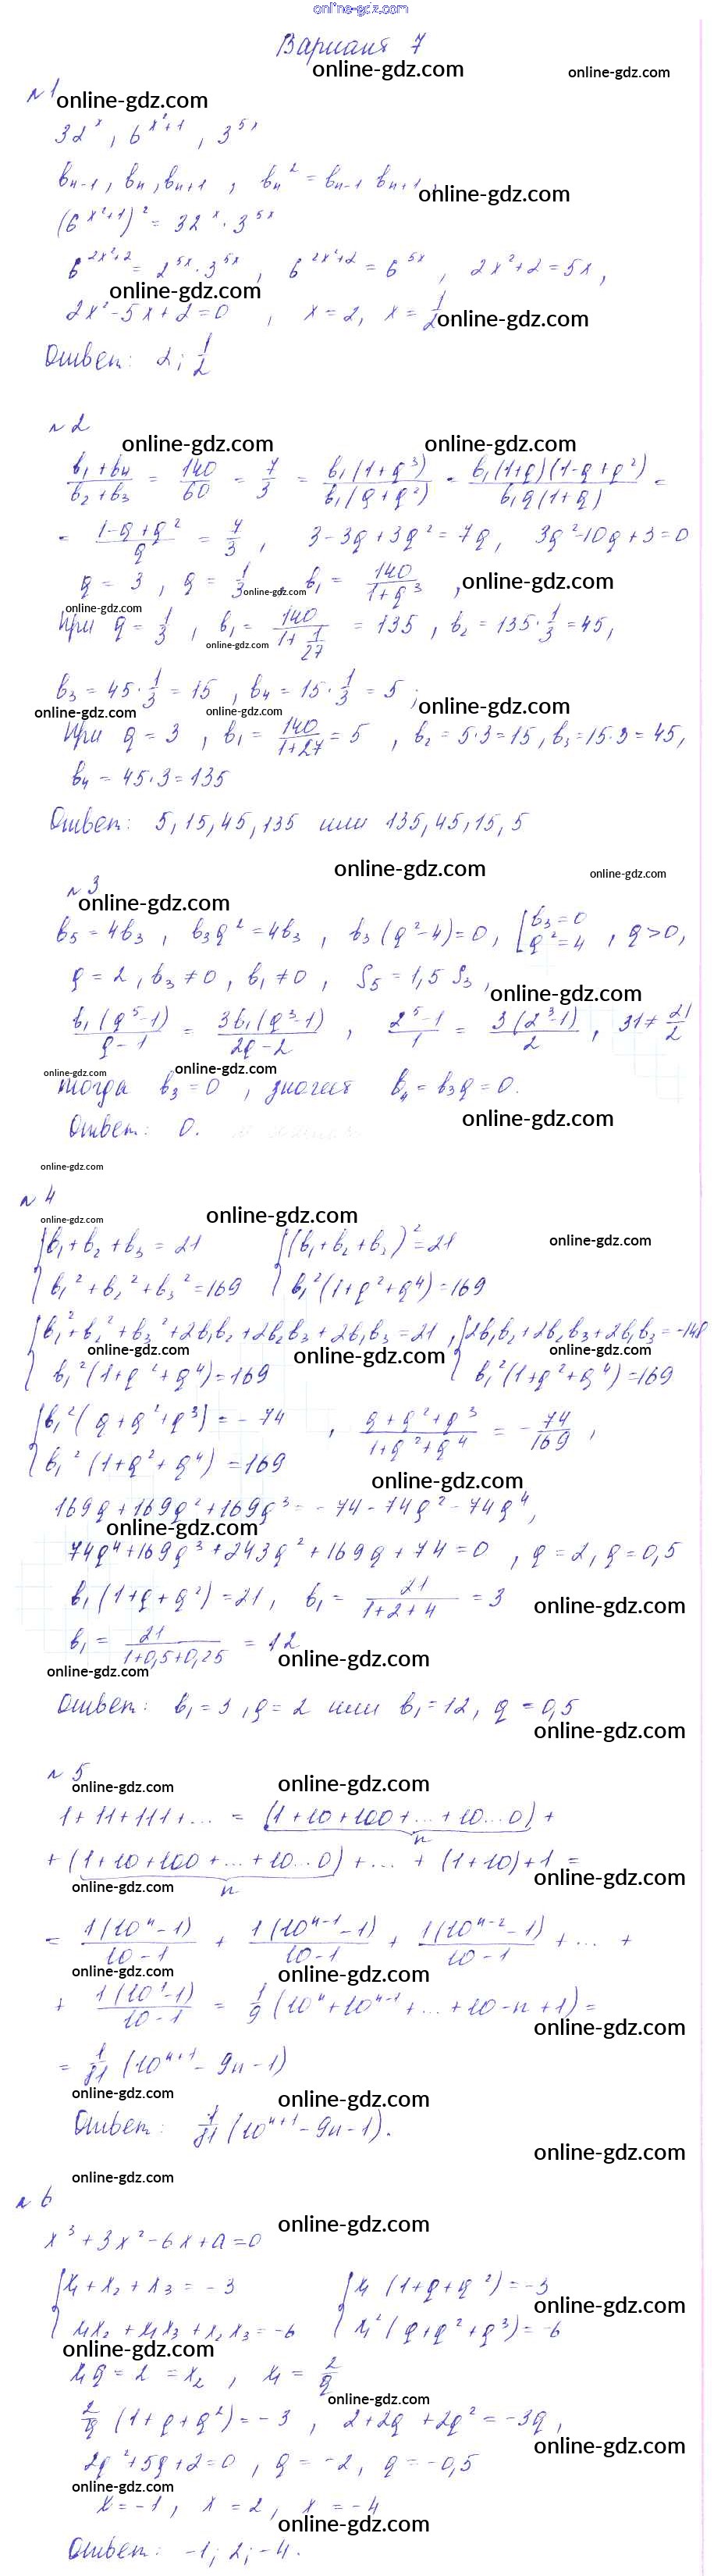 online-gdz.com
Вариант 7
online-gdz.com online-gdz.com
№1 online-gdz.com
32^x, 6^(x²+1), 3^(5x)
bₙ₋₁, bₙ, bₙ₊₁, bₙ² = bₙ₋₁ bₙ₊₁, online-gdz.com
(6^(x²+1))² = 32^x · 3^(5x)
6^(2x²+2) = 2^(5x) · 3^(5x), 6^(2x²+2) = 6^(5x), 2x²+2 = 5x,
online-gdz.com
2x²-5x+2=0, x=2, x=1/2 online-gdz.com
Ответ: 2; 1/2
№2
online-gdz.com online-gdz.com
(b₁+b₄)/(b₂+b₃) = 140/60 = 7/3 = b₁(1+q³)/(b₁(q+q²)) = b₁(1+q)(1-q+q²)/(b₁q(1+q)) =
= (1-q+q²)/q = 7/3, 3-3q+3q²=7q, 3q²-10q+3=0
q=3, q=1/3 online-gdz.com b₁=140/(1+q³), online-gdz.com
online-gdz.com
При q=1/3, b₁=140/(1+1/27) = 135, b₂=135·1/3=45,
online-gdz.com
b₃=45·1/3=15, b₄=15·1/3=5;
online-gdz.com online-gdz.com online-gdz.com
При q=3, b₁=140/(1+27)=5, b₂=5·3=15, b₃=15·3=45,
b₄=45·3=135
Ответ: 5, 15, 45, 135 или 135, 45, 15, 5
online-gdz.com online-gdz.com
№3
online-gdz.com
b₅=4b₃, b₃q²=4b₃, b₃(q²-4)=0, [b₃=0 q²=4, q>0,
q=2, b₃≠0, b₁≠0, S₅=1,5 S₃,
online-gdz.com
b₁(q⁵-1)/(q-1) = 3b₁(q³-1)/(2q-2), (2⁵-1)/1 = 3(2³-1)/2, 31≠21/2
online-gdz.com online-gdz.com
тогда b₃=0, значит b₄=b₃q=0.
online-gdz.com
Ответ: 0.
online-gdz.com
№4
online-gdz.com online-gdz.com online-gdz.com
{b₁+b₂+b₃=21 {(b₁+b₂+b₃)²=21
b₁²+b₂²+b₃²=169 b₁²(1+q²+q⁴)=169
{b₁²+b₂²+b₃²+2b₁b₂+2b₂b₃+2b₁b₃=21, {2b₁b₂+2b₂b₃+2b₁b₃=-148
online-gdz.com online-gdz.com online-gdz.com
b₁²(1+q²+q⁴)=169 b₁²(1+q²+q⁴)=169
{b₁²(q+q²+q³)=-74, (q+q²+q³)/(1+q²+q⁴) = -74/169,
b₁²(1+q²+q⁴)=169
online-gdz.com
169q+169q²+169q³=-74-74q²-74q⁴,
online-gdz.com
74q⁴+169q³+243q²+169q+74=0, q=2, q=0,5
b₁(1+q+q²)=21, b₁=21/(1+2+4)=3 online-gdz.com
b₁=21/(1+0,5+0,25)=12 online-gdz.com
online-gdz.com
Ответ: b₁=3, q=2 или b₁=12, q=0,5
online-gdz.com
№5
online-gdz.com online-gdz.com
1+11+111+... = (1+10+100+...+10...0)+
n
+(1+10+100+...+10...0)+...+(1+10)+1=
online-gdz.com n online-gdz.com
= 1(10ⁿ-1)/(10-1) + 1(10ⁿ⁻¹-1)/(10-1) + 1(10ⁿ⁻²-1)/(10-1) +...+
online-gdz.com online-gdz.com
+ 1(10¹-1)/(10-1) = 1/9(10ⁿ+10ⁿ⁻¹+...+10-n+1)=
online-gdz.com
= 1/81(10ⁿ⁺¹-9n-1)
online-gdz.com online-gdz.com
Ответ: 1/81(10ⁿ⁺¹-9n-1).
online-gdz.com
online-gdz.com
№6
online-gdz.com
x³+3x²-6x+a=0
{x₁+x₂+x₃=-3 {x₁(1+q+q²)=-3
online-gdz.com
x₁x₂+x₁x₃+x₂x₃=-6 x₁²(q+q²+q³)=-6
online-gdz.com
x₁q=2=x₂, x₁=2/q
online-gdz.com
2/q(1+q+q²)=-3, 2+2q+2q²=-3q,
online-gdz.com
2q²+5q+2=0, q=-2, q=-0,5
online-gdz.com
x=-1, x=2, x=-4
online-gdz.com
Ответ: -1; 2; -4.